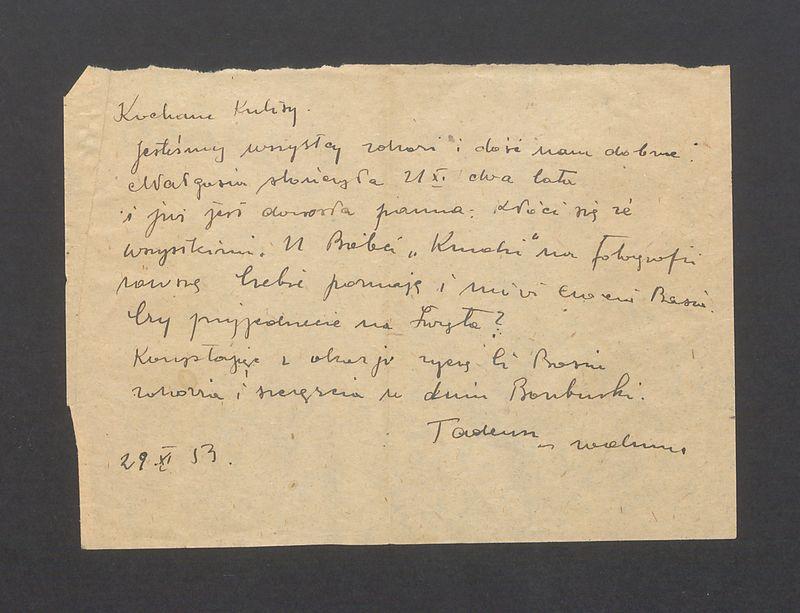 Kochane Kulisy.
Jesteśmy wszyscy zdrowi i dość nam dobrze.
Małgosia skończyła 21 XI dwa lata
i już jest dorosła panna. Kłóci się ze
wszystkimi. U Babci „ " na fotografii
zawsze Ciebie poznaje i mówi ciocia Basia.
Czy przyjedziecie na Święta?
Korzystając z okazji życzę Ci Basiu
zdrowia i szczęścia w dniu Barburki.
Tadeusz z rodziną
29 XI 53.